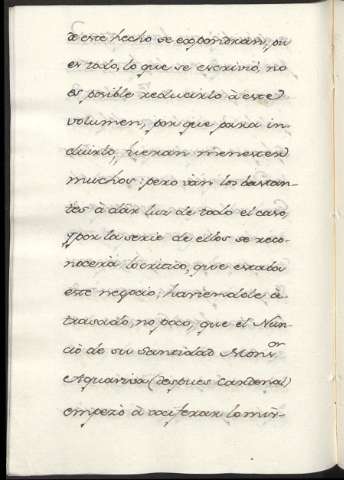 de este hecho se expondran, pu
es todo, lo que se escrivió, no
és posible reducirlo à este
volumen, por que para in-
cluirlo, fueran menester
muchos: pero ván los bastan-
tes à dár luz de todo el caso,
y por la serie de ellos se reco-
nocerà lo critico, que estaba
este negocio; haviendole à-
trasado, no poco, que el Nun-
cio de su Santidad Mons.or
Aquaviva (despues Cardenal)
empezò à vociferar lo mis-